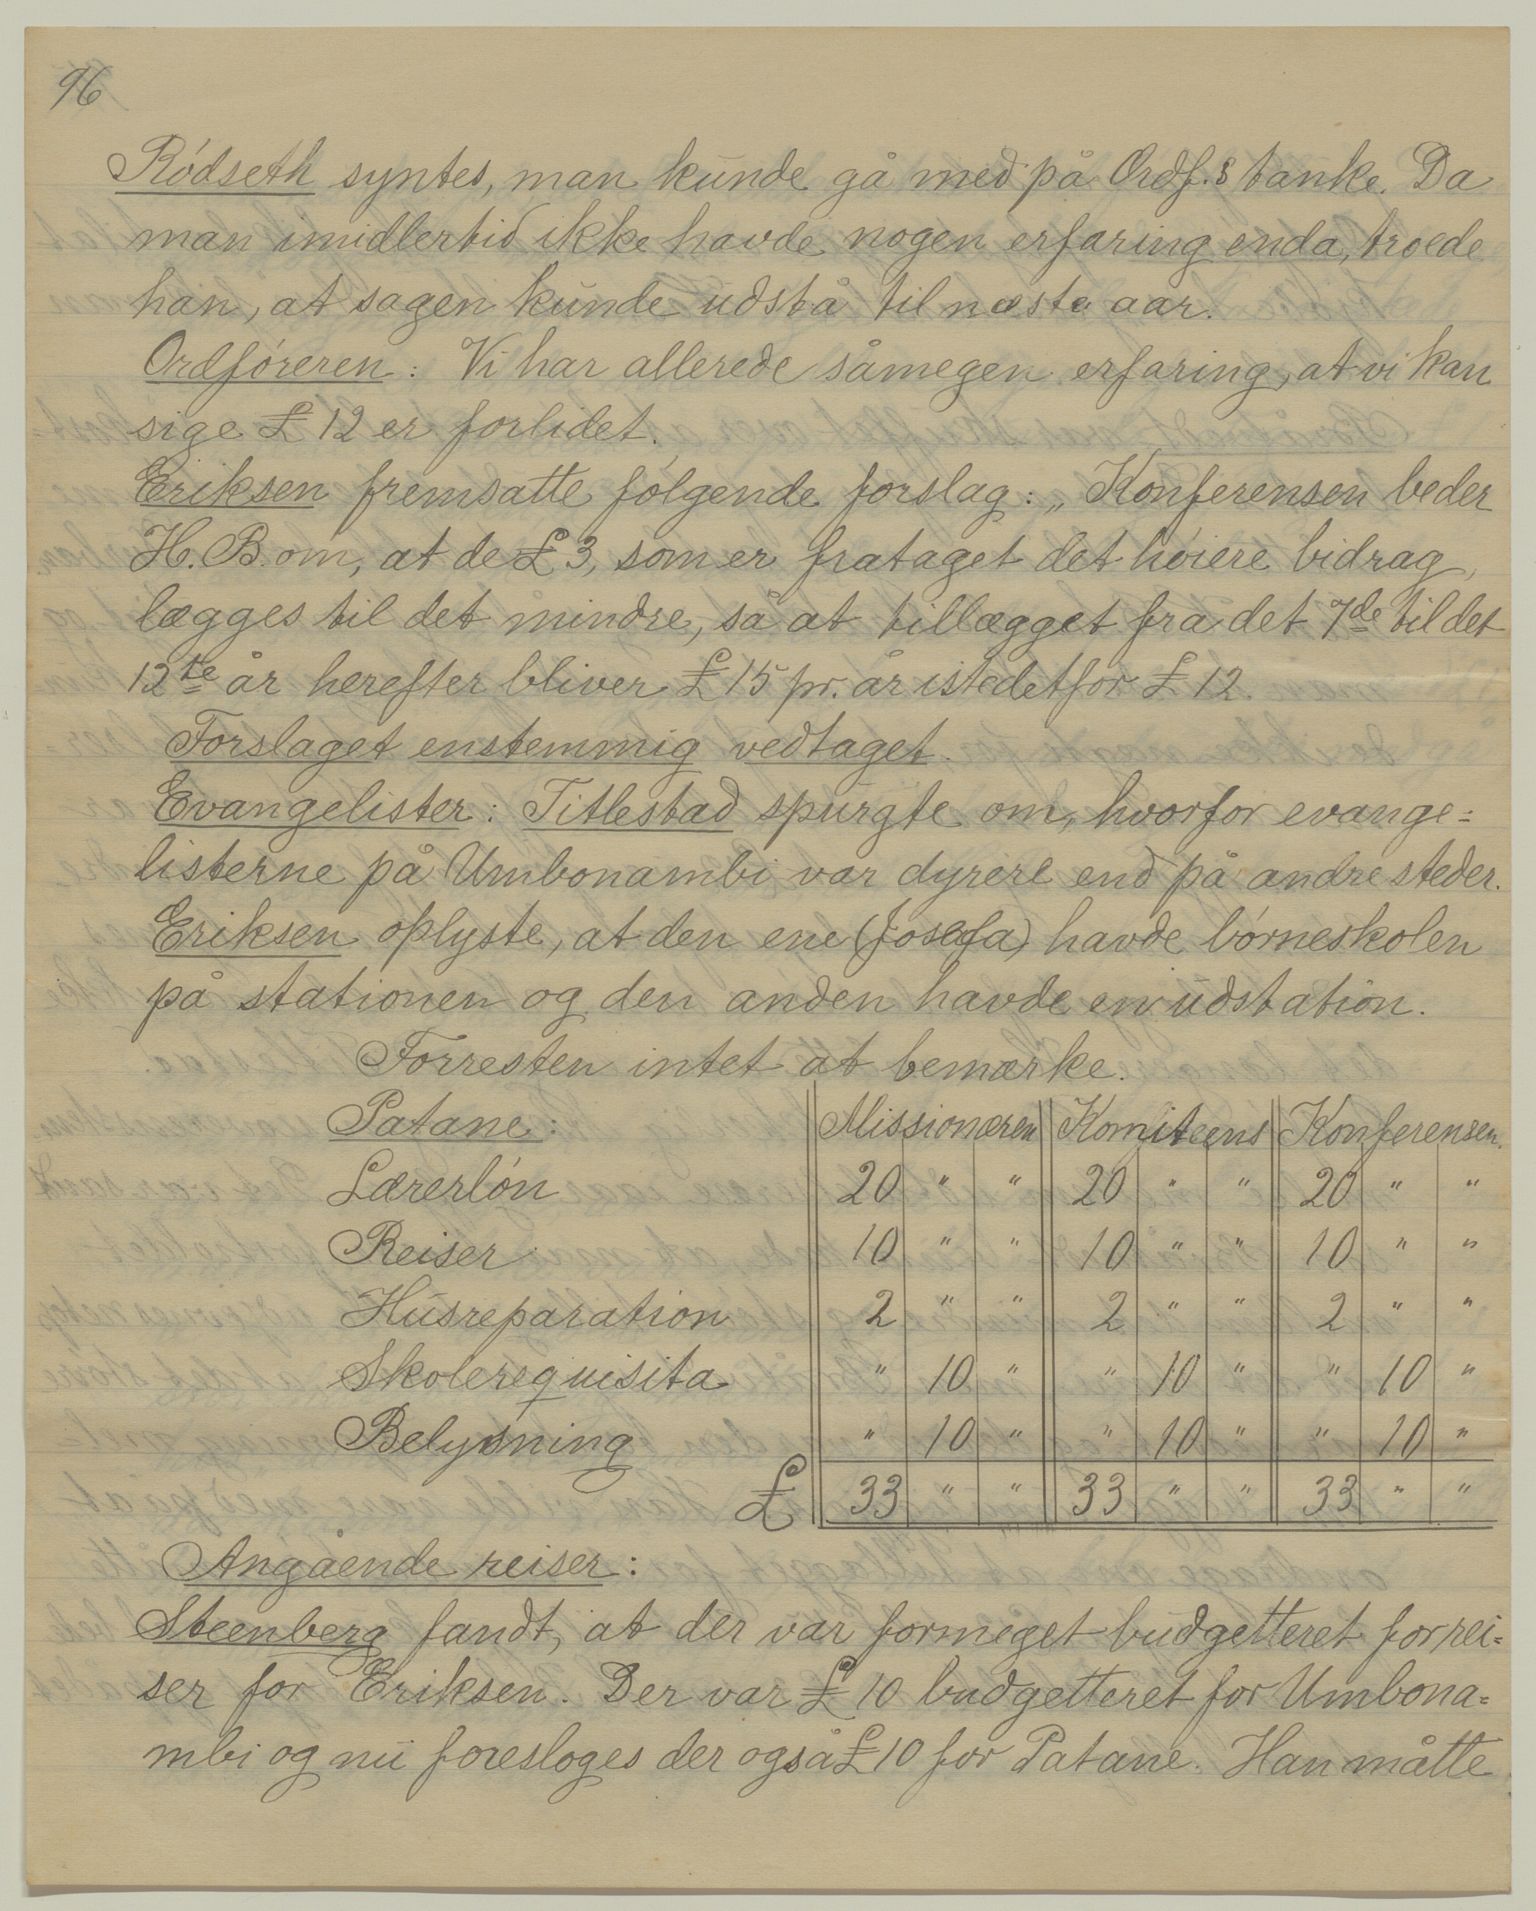 96
Ródseth syntes, man kunde gå med på Ordf.s tanke. Da
man imidlertid ikke havde nogen erfaring enda, troede
han, at sagen kunde udstå til næste aar.
Ordfóreren: Vi har allerede såmegen erfaring, at vi kan
sige £ 12 er forlidet.
Eriksen fremsatte fólgende forslag: „Konferensen beder
H. B. om, at de £ 3, som er frataget det hóiere bidrag,
lægges til det mindre, så at tillægget fra det 7de til det
12te år herefter bliver £ 15 pr. år istedetfor £ 12.
Forslaget enstemmig vedtaget.
Evangelister: Titlestad spurgte om, hvorfor evange=
listerne på Umbonambi var dyrere end på andre steder.
Eriksen oplyste, at den ene (Josefa) havde bórneskolen
på stationen og den anden havde en udstation.
Forresten intet at bemærke.
Patane: Missionæren Komiteens Konferensen.
Lærerlón 20 " " 20 " " 20 " "
Reiser 10 " " 10 " " 10 " "
Husreparation 2 " " 2 " " 2 " "
Skolerequisita " 10 " " 10 " " 10 "
Belysning " 10 " " 10 " " 10 "
£ 33 " " 33 " " 33 " "
Angående reiser:
Steenberg fandt, at der var formeget budgetteret for rei=
ser for Eriksen. Der var £ 10 budgetteret for Umbona=
mbi og nu foresloges der også £ 10 for Patane. Han måtte